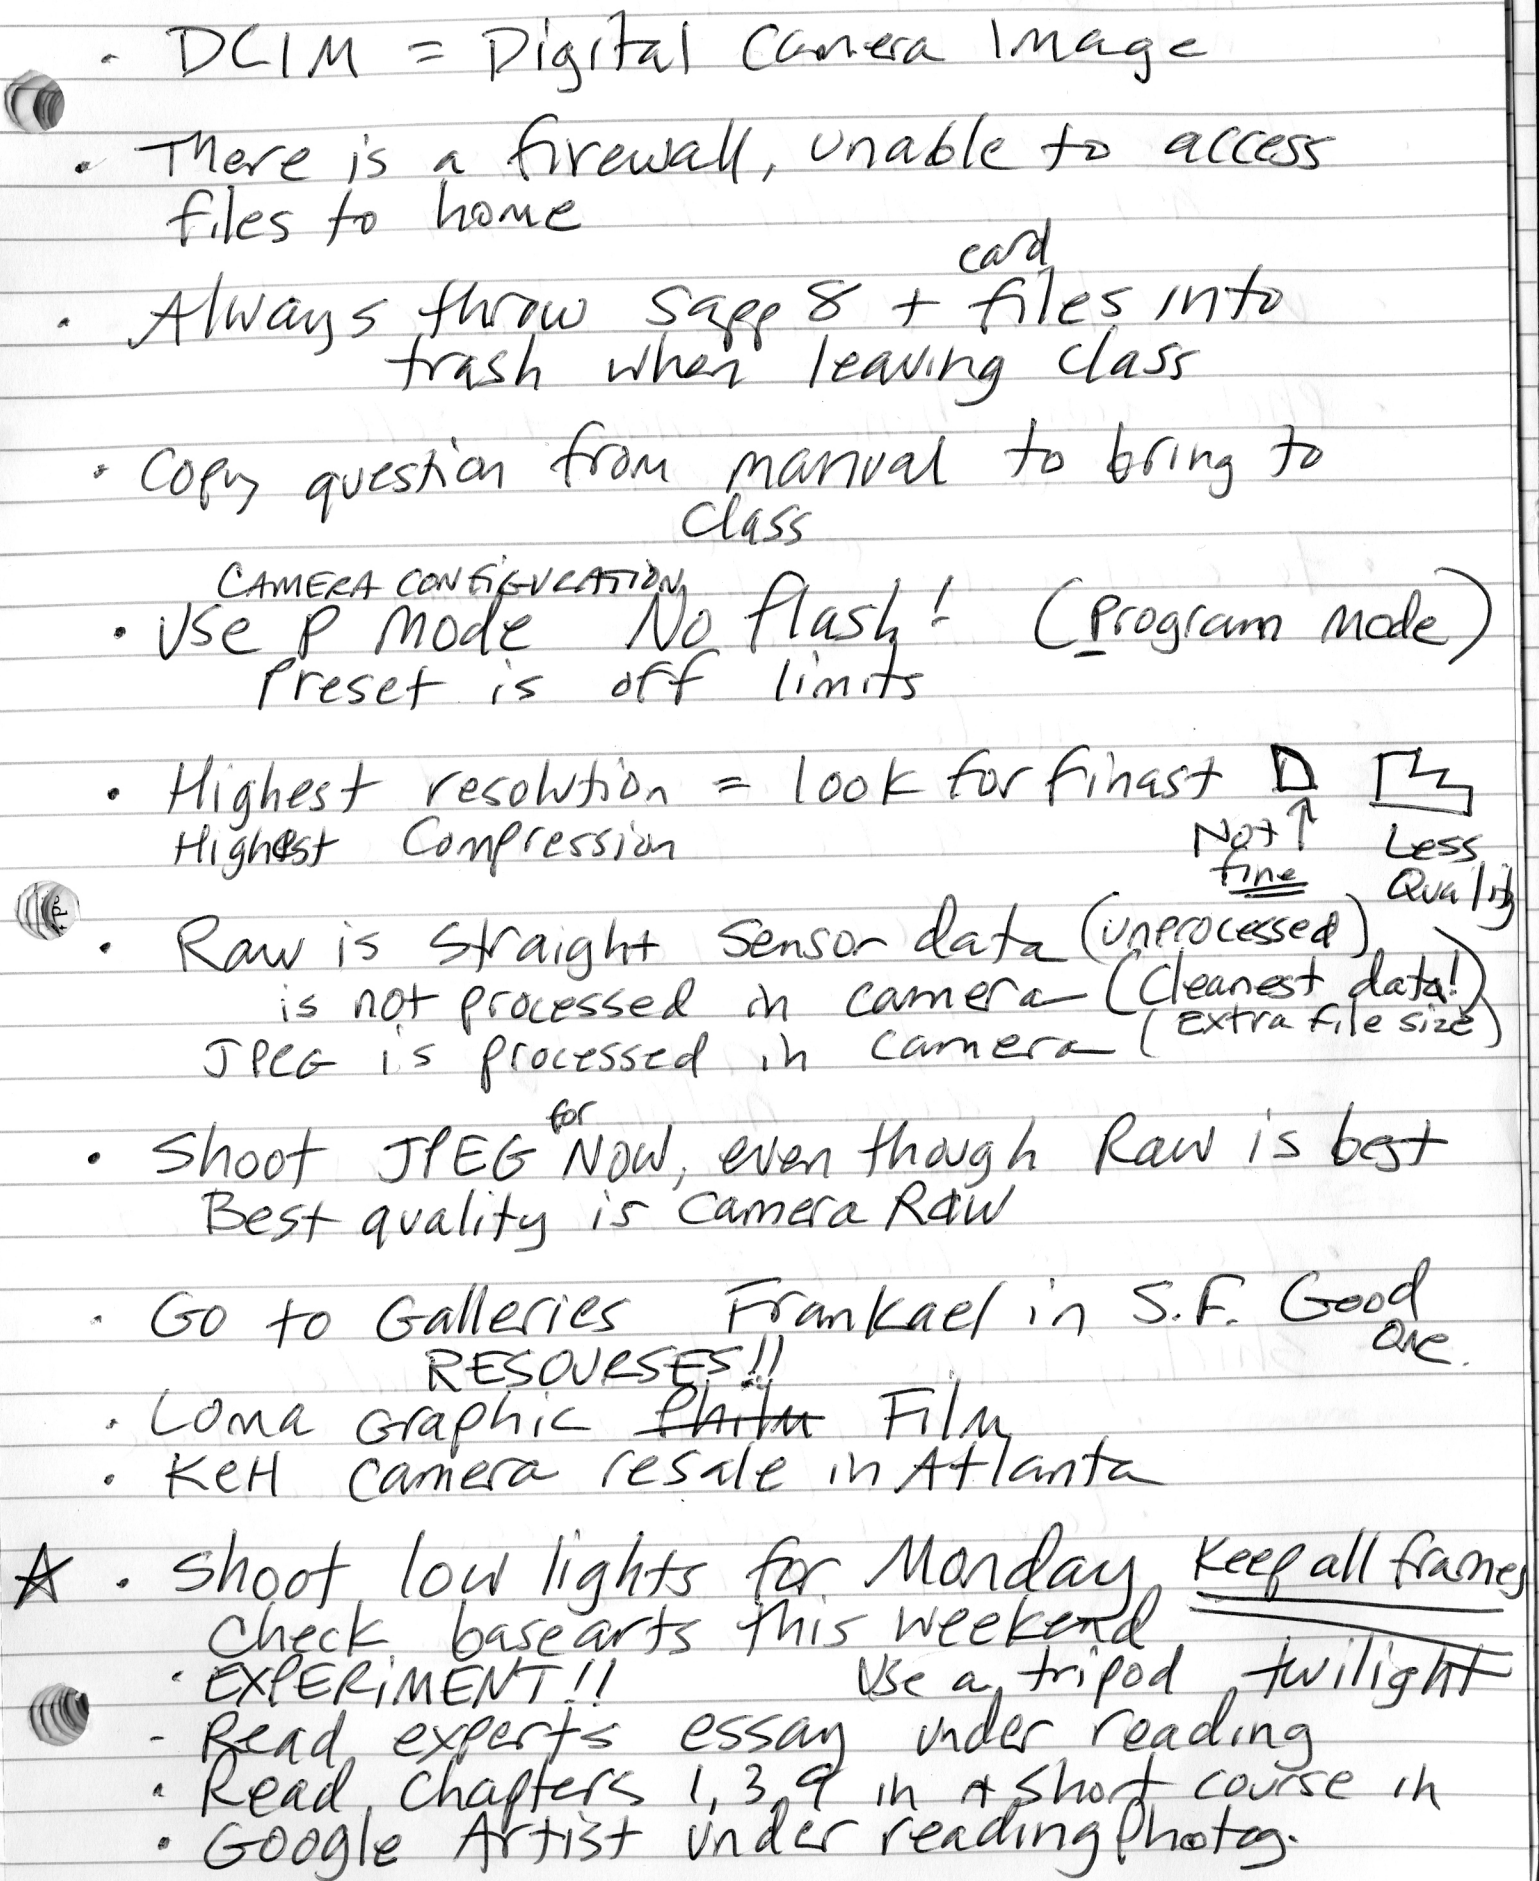 · DCIM = Digital Camera Image
· There is a firewall, unable to access
files to home
card
· Always throw Sapp 8 + files into
trash when leaving class
· Copy question from manual to bring to
class
CAMERA CONFIGURATION
· Use P Mode No flash! (Program Mode)
Preset is off limits
· Highest resolution = look for finast
Highest Compression
Not ↑ fine
Less Quality
· Raw is straight sensor data (unprocessed)
is not processed in camera (Cleanest data!)
(Extra file size)
JPEG is processed in camera
for
· Shoot JPEG Now, even though Raw is best
Best quality is Camera Raw
· Go to Galleries Frankael in S.F. Good
One.
RESOURSES!!
· Loma Graphic Philm Film
· KEH Camera resale in Atlanta
☆ · Shoot low lights for Monday Keep all frames
Check basearts this weekend
· EXPERiMENT!! Use a tripod twilight
- Read experts essay under reading
· Read Chapters 1, 3, 9 in A short course in
· Google Artist under reading Photog.